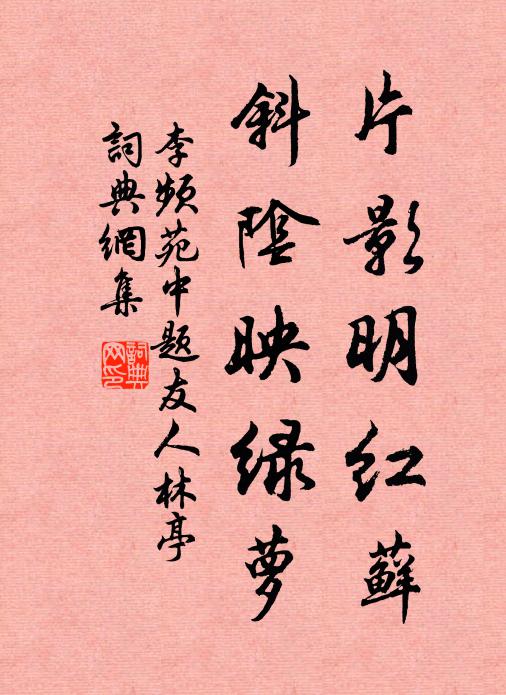 片影明红蘚
斜陰映绿萝
李频苑中题友人林亭
詞典網集
詞典网印